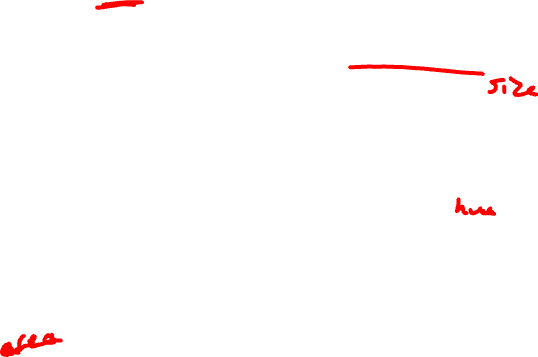 size
hue
area